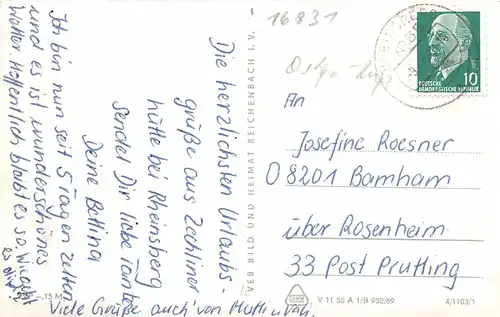 16831
Die herzlichsten Urlaubs-
grüße aus Zechliner
hütte bei Rheinsberg
sendet Dir liebe Tante
Deine Bettina
Ich bin nun seit 5 Tagen zelten
und es ist wunderschönes
Wetter. Hoffentlich bleibt es so.
Viele Grüße auch von Mutti u.
VEB BILD UND HEIMAT REICHENBACH I. V.
DEUTSCHE
DEMOKRATISCHE REPUBLIK
10
An
Josefine Roesner
O 8201 Bamham
über Rosenheim
33 Post Prutting
V 11 50 A 1/B 952/69
4/1103/1